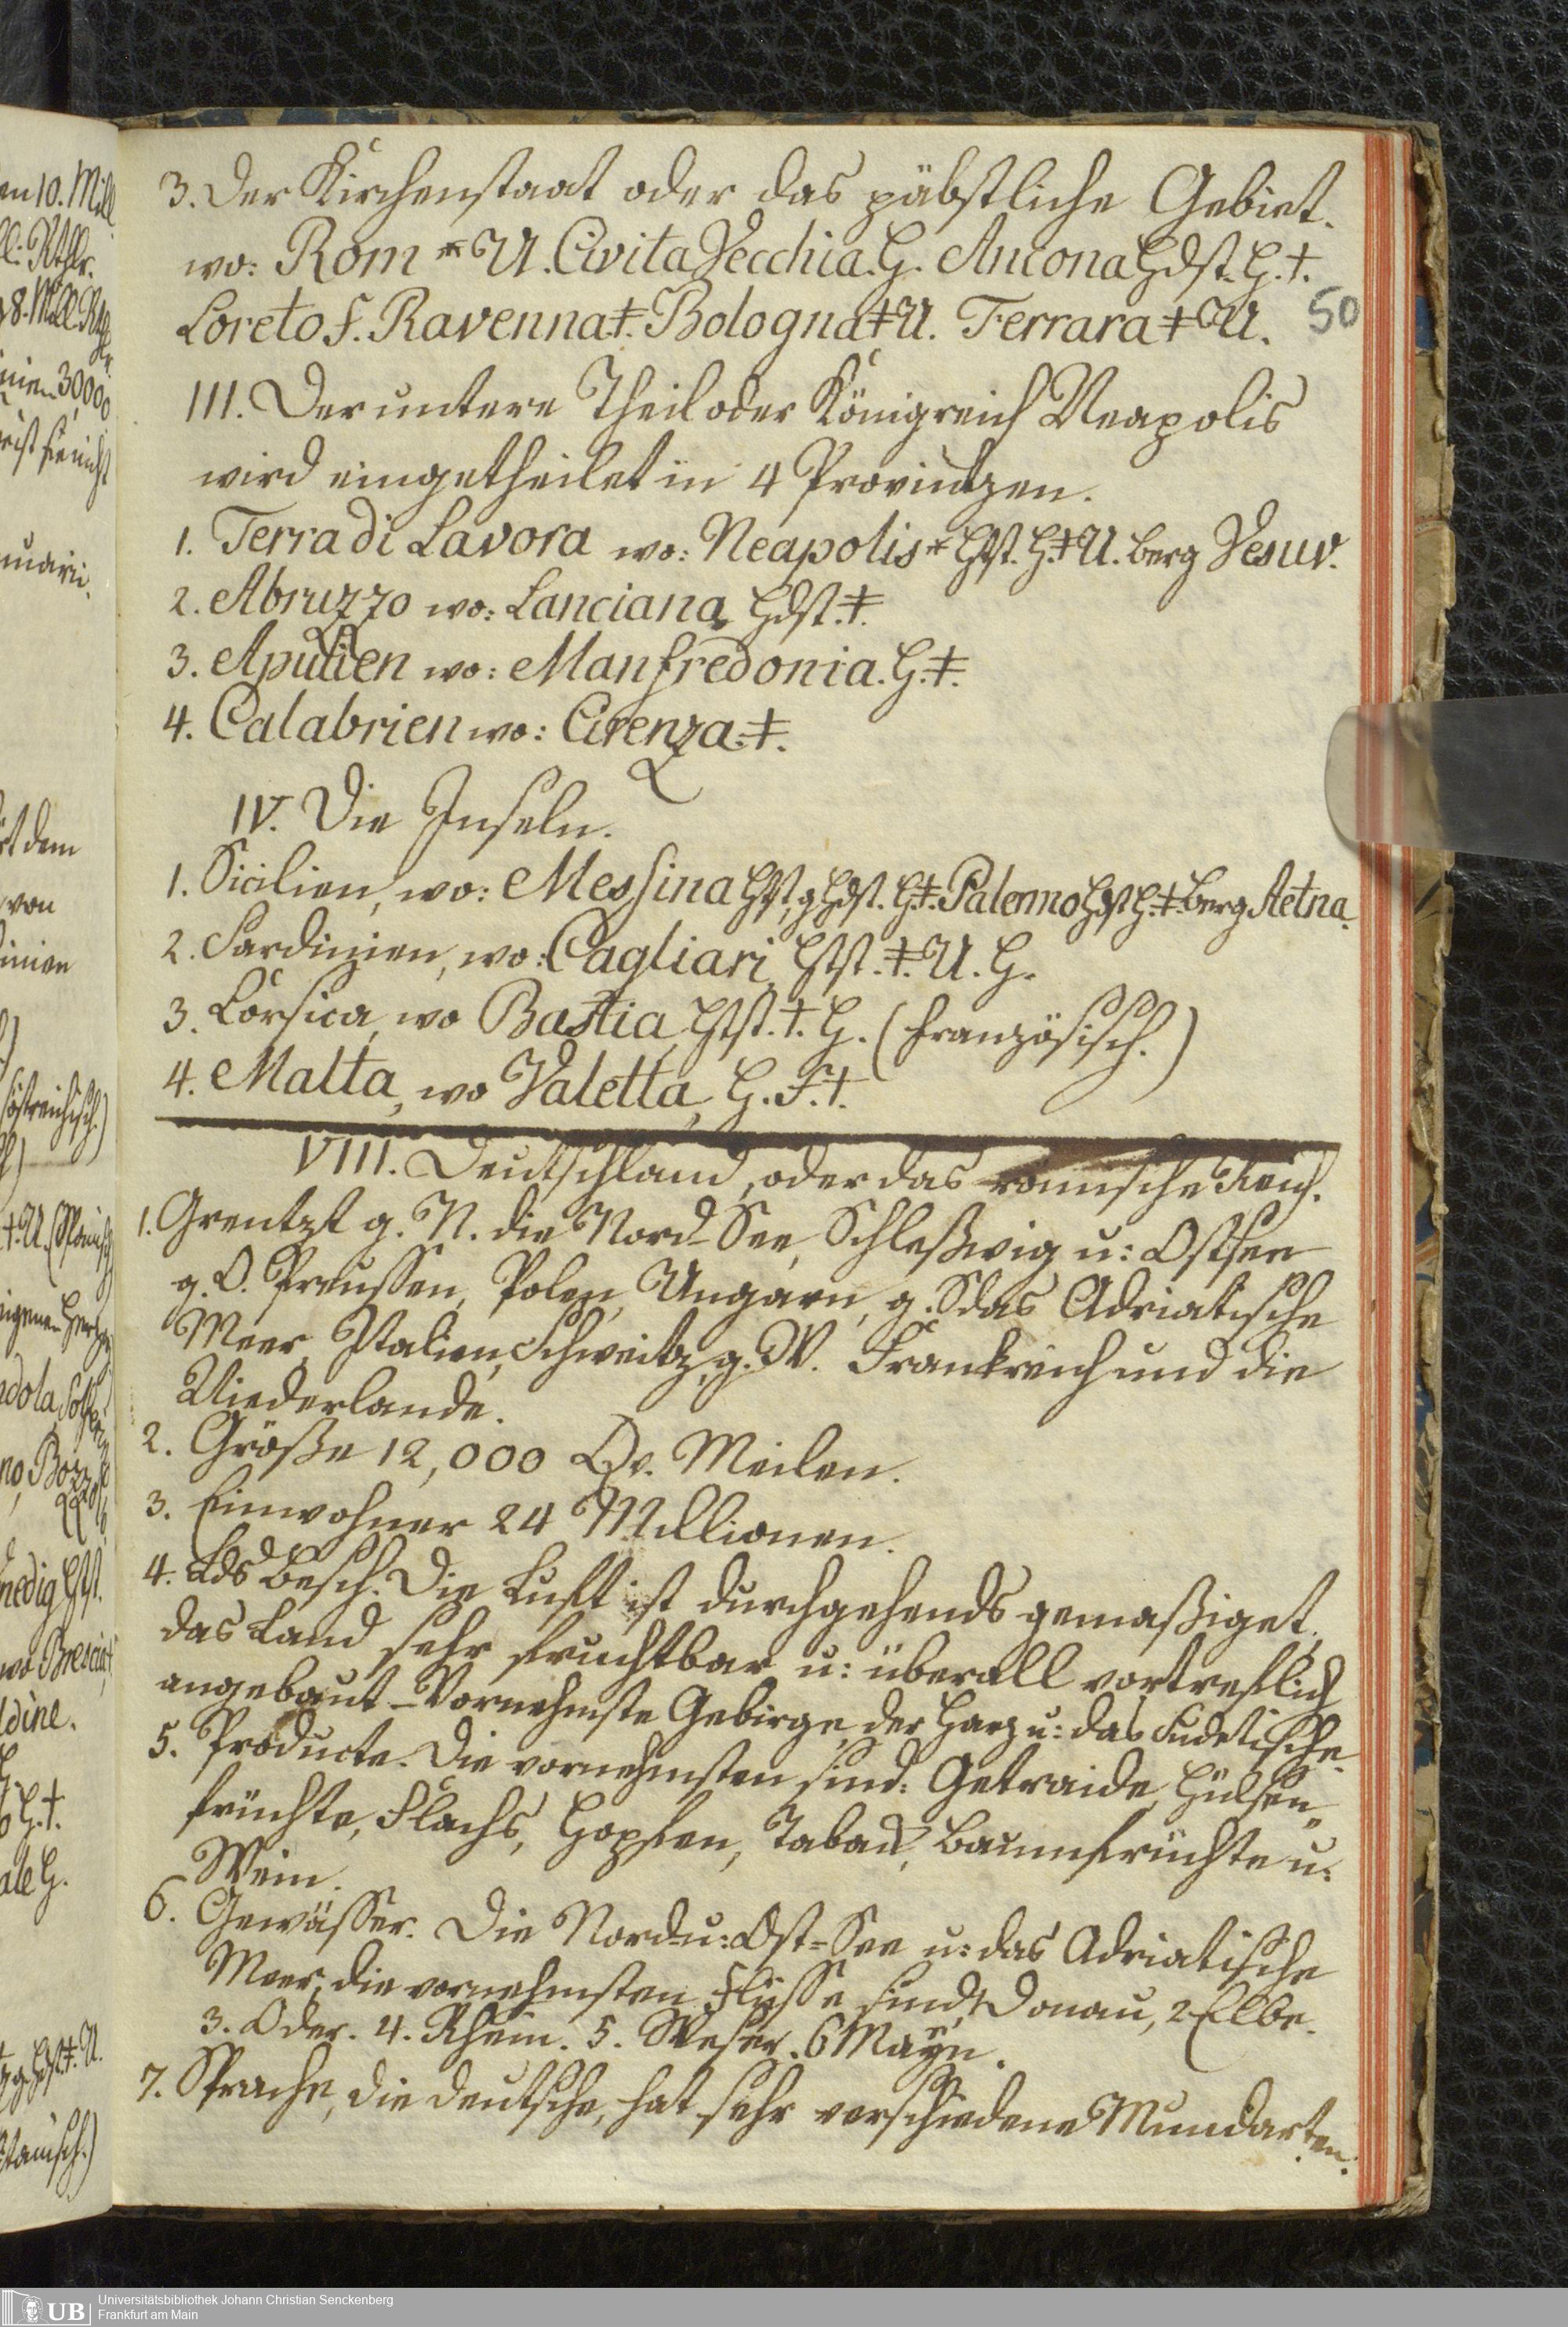 3. Der Kirchenstaat oder das päbstliche Gebiet.
wo: Rom * U. Civita Vecchia. H. Ancona Hdst. H. †.
Loreto f. Ravenna ‡. Bologna ‡ U. Ferrara ‡ U.
50
III. Der untere Theil oder Königreich Neapolis
wird eingetheilet in 4 Provintzen.
1. Terra di Lavora wo: Neapolis * Hst. H. ‡ U. berg Vesuv.
2. Abruzzo wo: Lanciana, Hdst. ‡.
3. Apulien wo: Manfredonia. H. ‡.
4. Calabrien wo: Cirenza. ‡.
IV. Die Inseln.
1. Sicilien, wo: Messina Hst, g Hdst. H. ‡. Palermo Hdst H. ‡. berg Aetna.
2. Sardinien, wo: Cagliari, Htst. ‡. U. H.
3. Corsica, wo Bastia, Htst. †. H. (französisch.)
4. Malta, wo Valetta, H. F. †.
VIII. Deutschland, oder das römische Reich.
1. Grentzt g. N. die Nord-See, Schleßwig u: Ostsee
g. O. Preussen, Polen, Ungarn, g. S das Adriatische
Meer, Italien, Schweitz, g. W. Frankreich und die
Niederlande.
2. Größe 12,000 Qv. Meilen.
3. Einwohner 24 Millionen.
4. Lds Besch. Die Luft ist durchgehends gemaßiget,
das Land sehr fruchtbar u: überall vortreflich
angebaut - Vornehmste Gebirge, der Harz u: das Sudetische.
5. Producte. Die vornehmsten sind: Getraide, Hülsen-
früchte, Flachs, Hopfen, Taback, Baumfrüchte u:
Wein.
6. Gewässer. Die Nord- u: Ost-See u: das Adriatische
Meer, die vornehmsten Flüsse sind, 1 Donau, 2 Elbe.
3. Oder. 4. Rhein. 5. Weser. 6 Mayn.
7. Sprache, die deutsche, hat sehr verschiedene Mundarten.
UB
Universitätsbibliothek Johann Christian Senckenberg
Frankfurt am Main